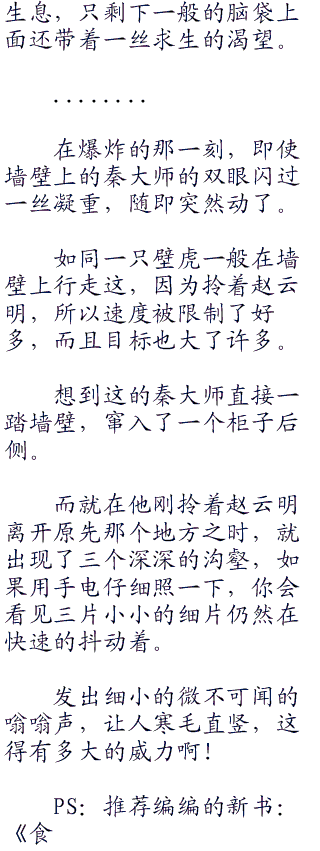 生息，只剩下一般的脑袋上
面还带着一丝求生的渴望。
........
在爆炸的那一刻，即使
墙壁上的秦大师的双眼闪过
一丝凝重，随即突然动了。
如同一只壁虎一般在墙
壁上行走这，因为拎着赵云
明，所以速度被限制了好
多，而且目标也大了许多。
想到这的秦大师直接一
踏墙壁，窜入了一个柜子后
侧。
而就在他刚拎着赵云明
离开原先那个地方之时，就
出现了三个深深的沟壑，如
果用手电仔细照一下，你会
看见三片小小的细片仍然在
快速的抖动着。
发出细小的微不可闻的
嗡嗡声，让人寒毛直竖，这
得有多大的威力啊！
PS：推荐编编的新书：
《食